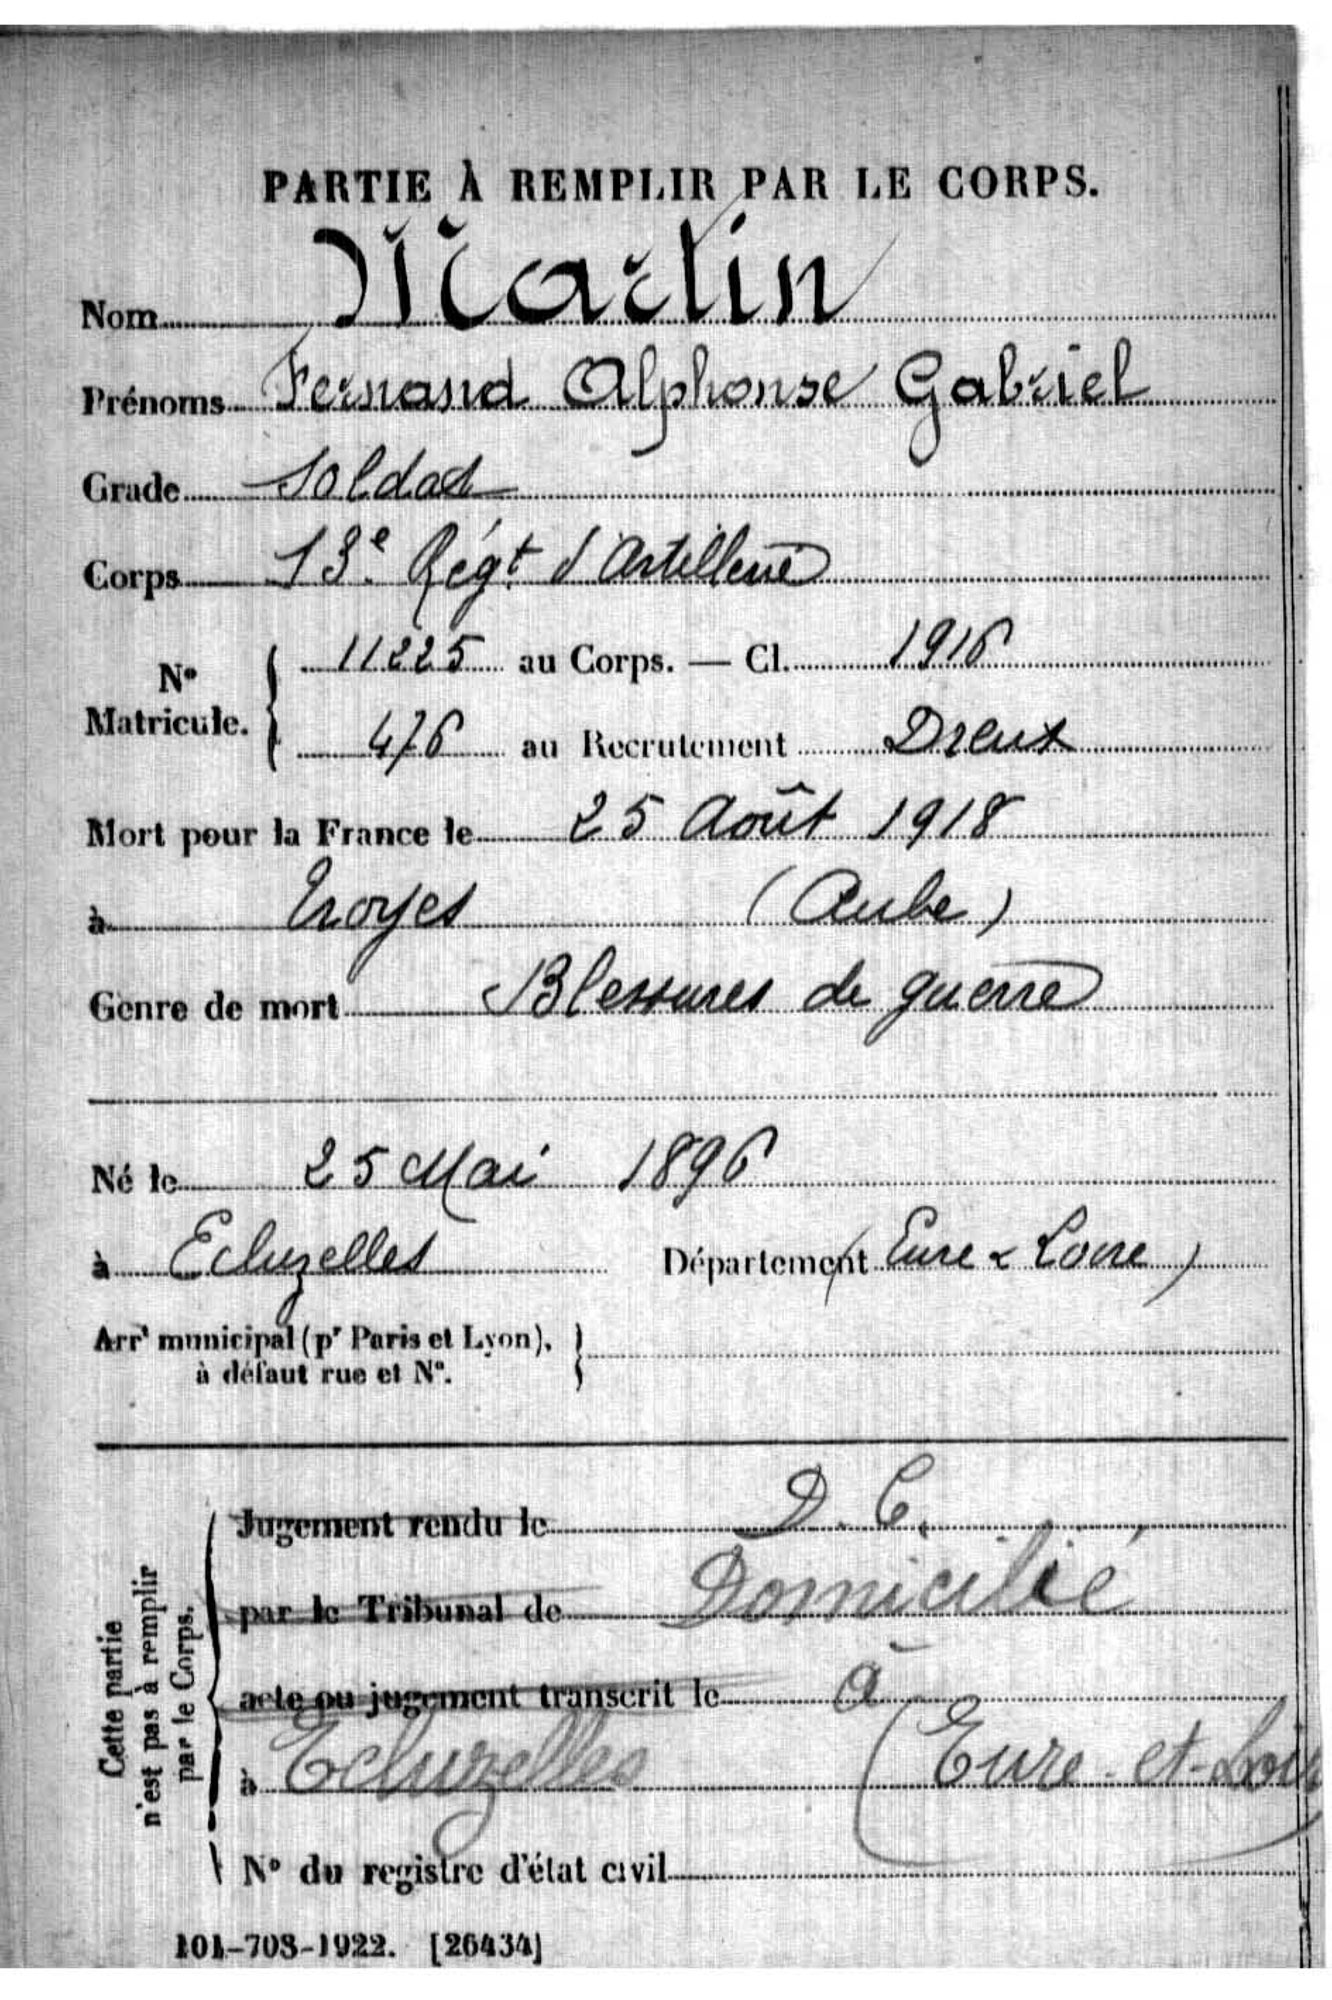 PARTIE À REMPLIR PAR LE CORPS.
Nom Martin
Prénoms Fernand Alphonse Gabriel
Grade Soldat
Corps 13e Régt d'Artillerie
No Matricule. { 11225 au Corps. — Cl. 1916
476 au Recrutement Dreux
Mort pour la France le 25 Août 1918
à Troyes (Aube)
Genre de mort Blessures de guerre
Né le 25 Mai 1896
à Ecluzelles Département (Eure & Loire)
Arrt municipal (pr Paris et Lyon), }
à défaut rue et No.
Cette partie
n'est pas à remplir
par le Corps.
Jugement rendu le D. C.
par le Tribunal de Domicilié
acte ou jugement transcrit le à
à Ecluzelles (Eure-et-Loir
No du registre d'état civil
101-708-1922. [26434]